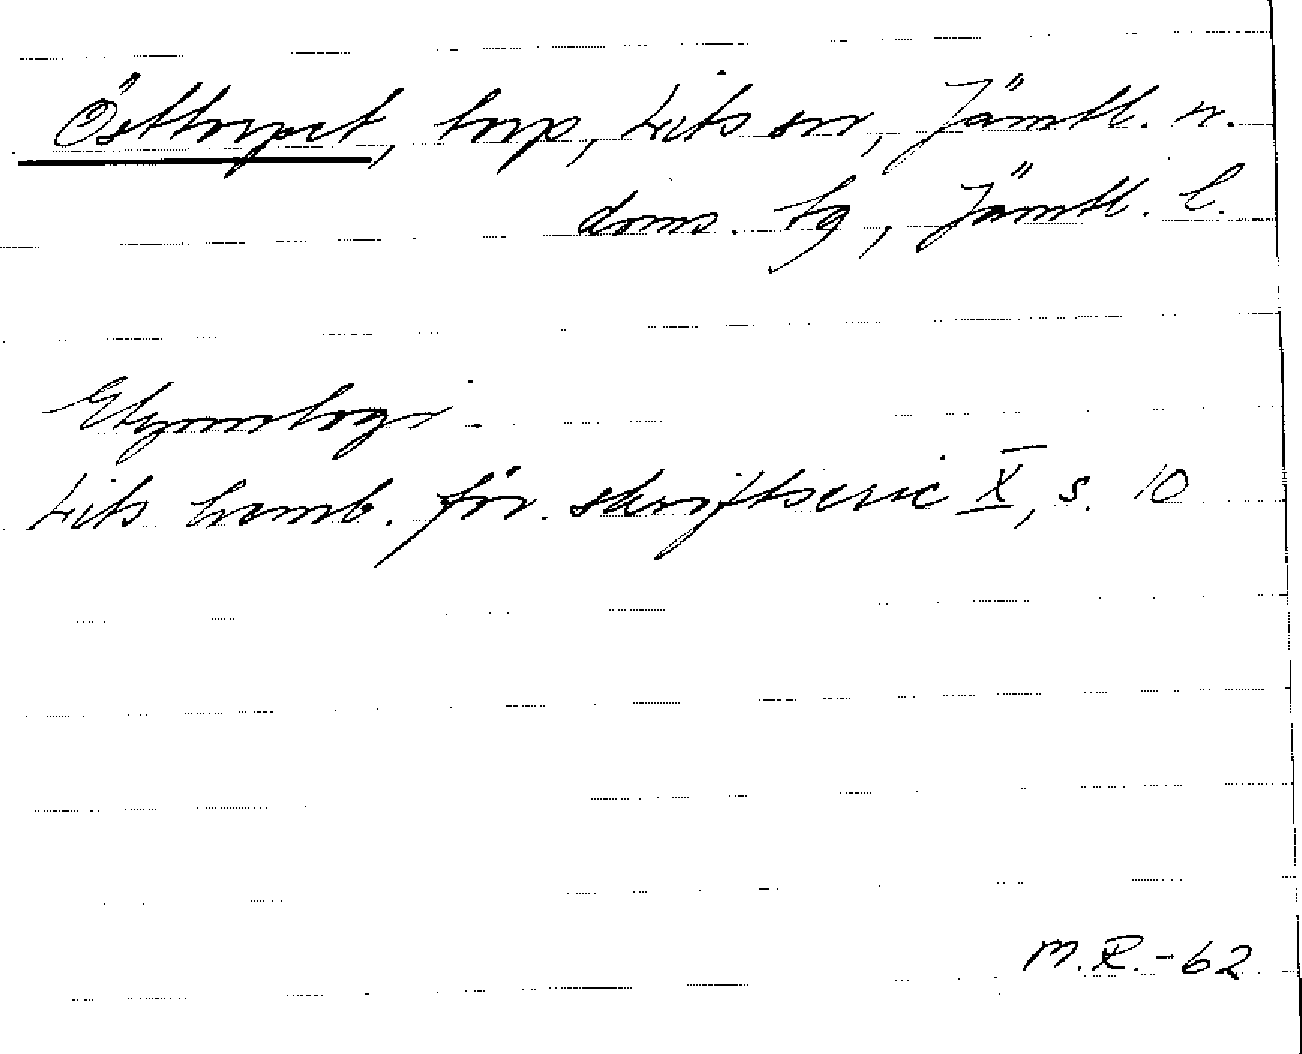 Östtorpet, torp, Lits sn, Jämtl. n.
doms. tg, Jämtl. l.
Etymologi.
Lits hemb. för. skriftserie X, s. 10
M.R.-62